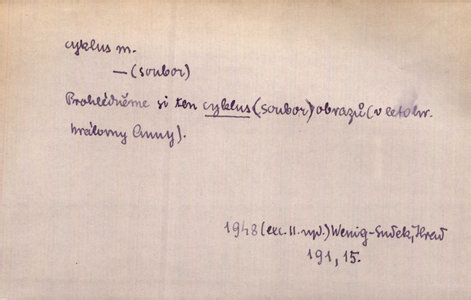 cyklus m.
— (soubor)
Prohlédněme si ten cyklus (soubor) obrazů (v letohr.
královny Anny).
1948 (exc. II. vyd.) Wenig-Sudek, Hrad
191, 15.